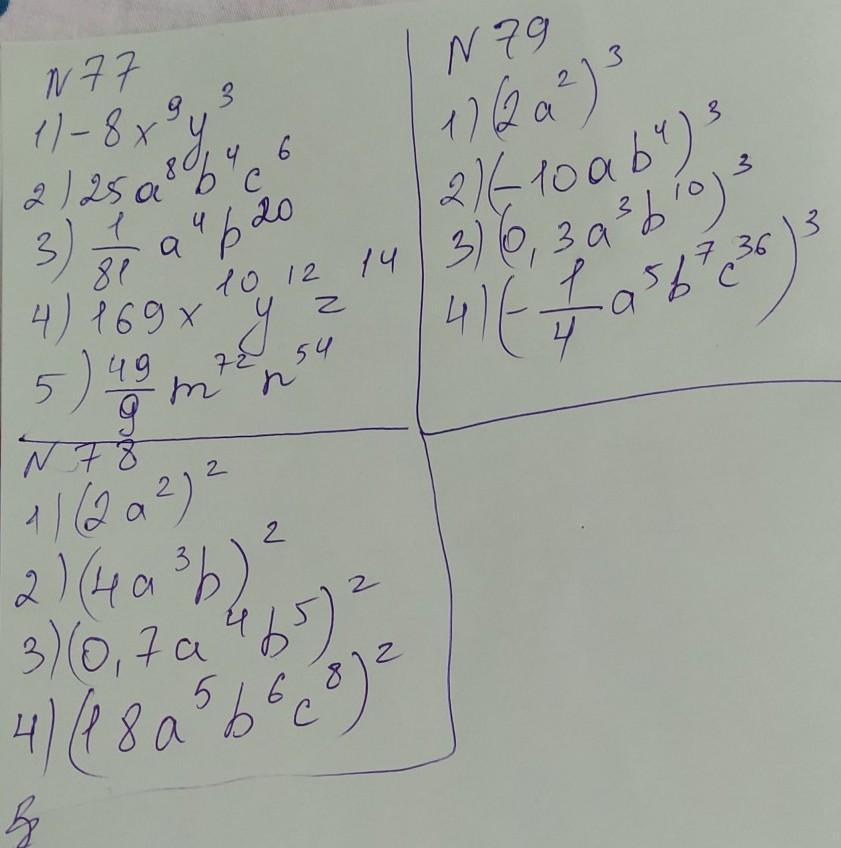 N 77
1) -8x⁹y³
2) 25a⁸b⁴c⁶
3) 1/81 a⁴b²⁰
4) 169x¹⁰y¹²z¹⁴
5) 49/9 m⁷²n⁵⁴
N 78
1) (2a²)²
2) (4a³b)²
3) (0,7a⁴b⁵)²
4) (18a⁵b⁶c⁸)²
N 79
1) (2a²)³
2) (-10ab⁴)³
3) (0,3a³b¹⁰)³
4) (-1/4 a⁵b⁷c³⁶)³